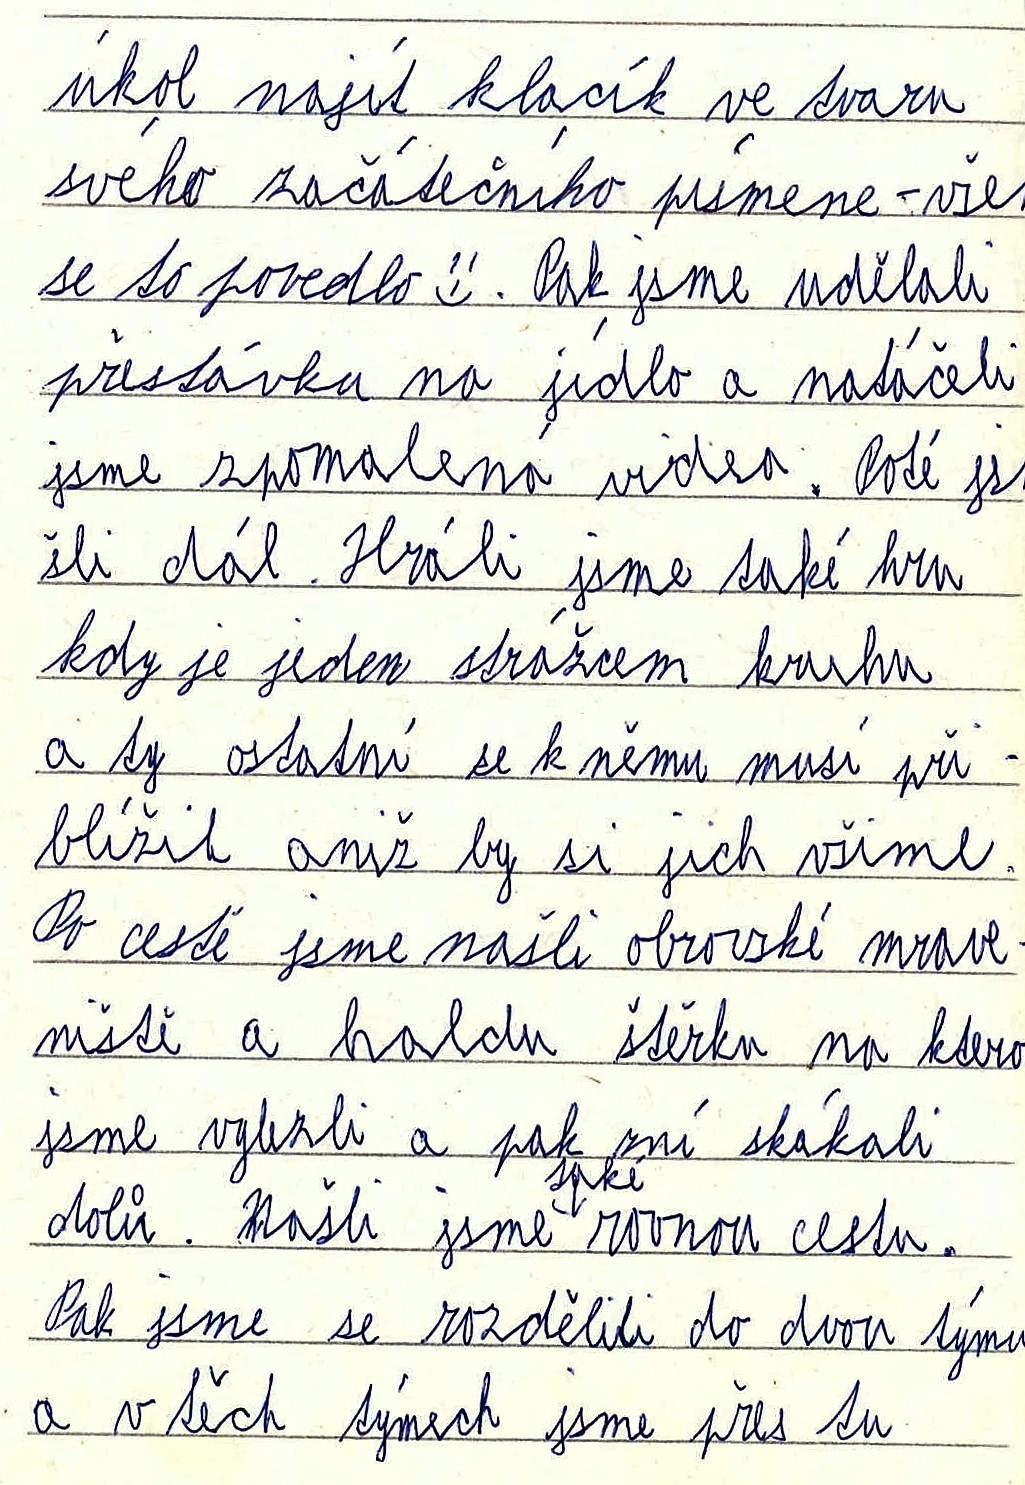 úkol najít klacík ve tvaru
svého začátečního písmene - vše
se to povedlo :). Pak jsme udělali
přestávku na jídlo a natáčeli
jsme zpomalená videa. Poté js
šli dál. Hráli jsme také hru
kdy je jeden strážcem kruhu
a ty ostatní se k němu musí při-
blížit aniž by si jich všiml.
Po cestě jsme našli obrovské mrave-
niště a haldu štěrku na ktero
jsme vylezli a pak zní skákali
také
dolů. Našli jsme rovnou cestu.
Pak jsme se rozdělili do dvou týmu
a v těch týmech jsme přes tu